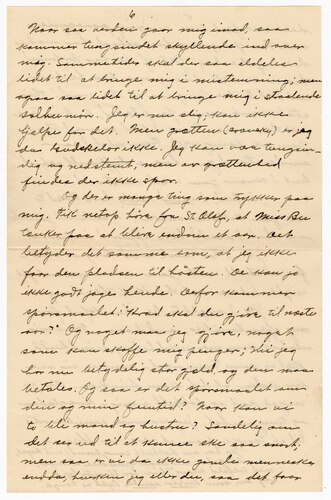 6
Naar saa verden gaar mig imod, saa
kommer tungsindet skyllende ind over
mig. Sommetider skal der saa alděles
lidet til at bringe mig i misstemning; men
ogsaa saa lidet til at bringe mig i straalende
solhumør. Jeg er nu slig; kan ikke
hjælpe for det. Men grætten (cranky) er jeg
da Gudskelov ikke. Jeg kan være tungsin-
dig og nedstemt, men av grættenhed
findes der ikke spor.
Og der er mange ting som trykker paa
mig. Fik netop høre fra St. Olaf, at Miss Bu
tænker paa at blive endnu et aar. Det
betyder det samme som, at jeg ikke
faar den pladsen til høsten. De kan jo
ikke godt jage hende. Derfor kommer
spørsmaalet: "Hvad skal du gjøre til næste
aar?" Og noget maa jeg gjøre, noget
som kan skaffe mig penger; thi jeg
har nu betydelig stor gjæld, og den maa
betales. Og saa er det spørsmaalet om
din og min fremtid? Naar kan vi
to bli mand og hustru? Sandelig om
det ser ud til at kunne ske saa snart;
men saa er vi da ikke gamle mennesker
endda, hverken jeg eller du, saa det faar